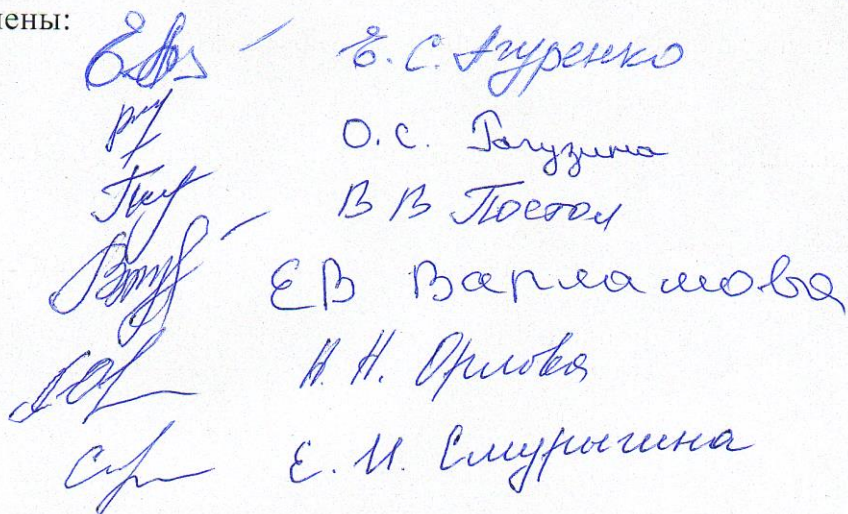 лены:
Е. С. Агуренко
О.С. Рагузина
В В Постол
ЕВ Варламова
Н. Н. Орлова
Е. И. Смурыгина